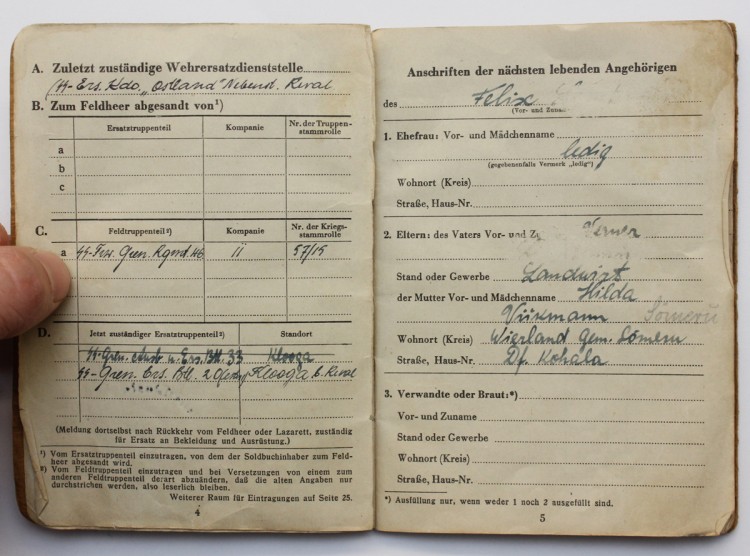 A. Zuletzt zuständige Wehrersatzdienststelle
Ers. Kdo. „Ostland" Nebenst. Reval
B. Zum Feldheer abgesandt von¹)
Ersatztruppenteil
Kompanie
Nr. der Truppen-
stammrolle
a
b
c
C.
Feldtruppenteil²)
Kompanie
Nr. der Kriegs-
stammrolle
a
Gren. 46
11
57/15
D.
Jetzt zuständiger Ersatztruppenteil²)
Standort
Gren. u. Ers. Btl. 33
Klooga
Gren. Ers. Btl. Klooga b. Reval
(Meldung dortselbst nach Rückkehr vom Feldheer oder Lazarett, zuständig
für Ersatz an Bekleidung und Ausrüstung.)
¹) Vom Ersatztruppenteil einzutragen, von dem der Soldbuchinhaber zum Feld-
heer abgesandt wird.
²) Vom Feldtruppenteil einzutragen und bei Versetzungen von einem zum
anderen Feldtruppenteil derart abzuändern, daß die alten Angaben nur
durchstrichen werden, also leserlich bleiben.
Weiterer Raum für Eintragungen auf Seite 25.
4
Anschriften der nächsten lebenden Angehörigen
des Felix
(Vor- und Zuname)
1. Ehefrau: Vor- und Mädchenname
ledig
(gegebenenfalls Vermerk „ledig")
Wohnort (Kreis)
Straße, Haus-Nr.
2. Eltern: des Vaters Vor- und Verner
Stand oder Gewerbe Landwirt
der Mutter Vor- und Mädchenname Hilda
Wohnort (Kreis) Wierland Gem. Sömeru
Straße, Haus-Nr. Df. Kohala
3. Verwandte oder Braut:*)
Vor- und Zuname
Stand oder Gewerbe
Wohnort (Kreis)
Straße, Haus-Nr.
*) Ausfüllung nur, wenn weder 1 noch 2 ausgefüllt sind.
5